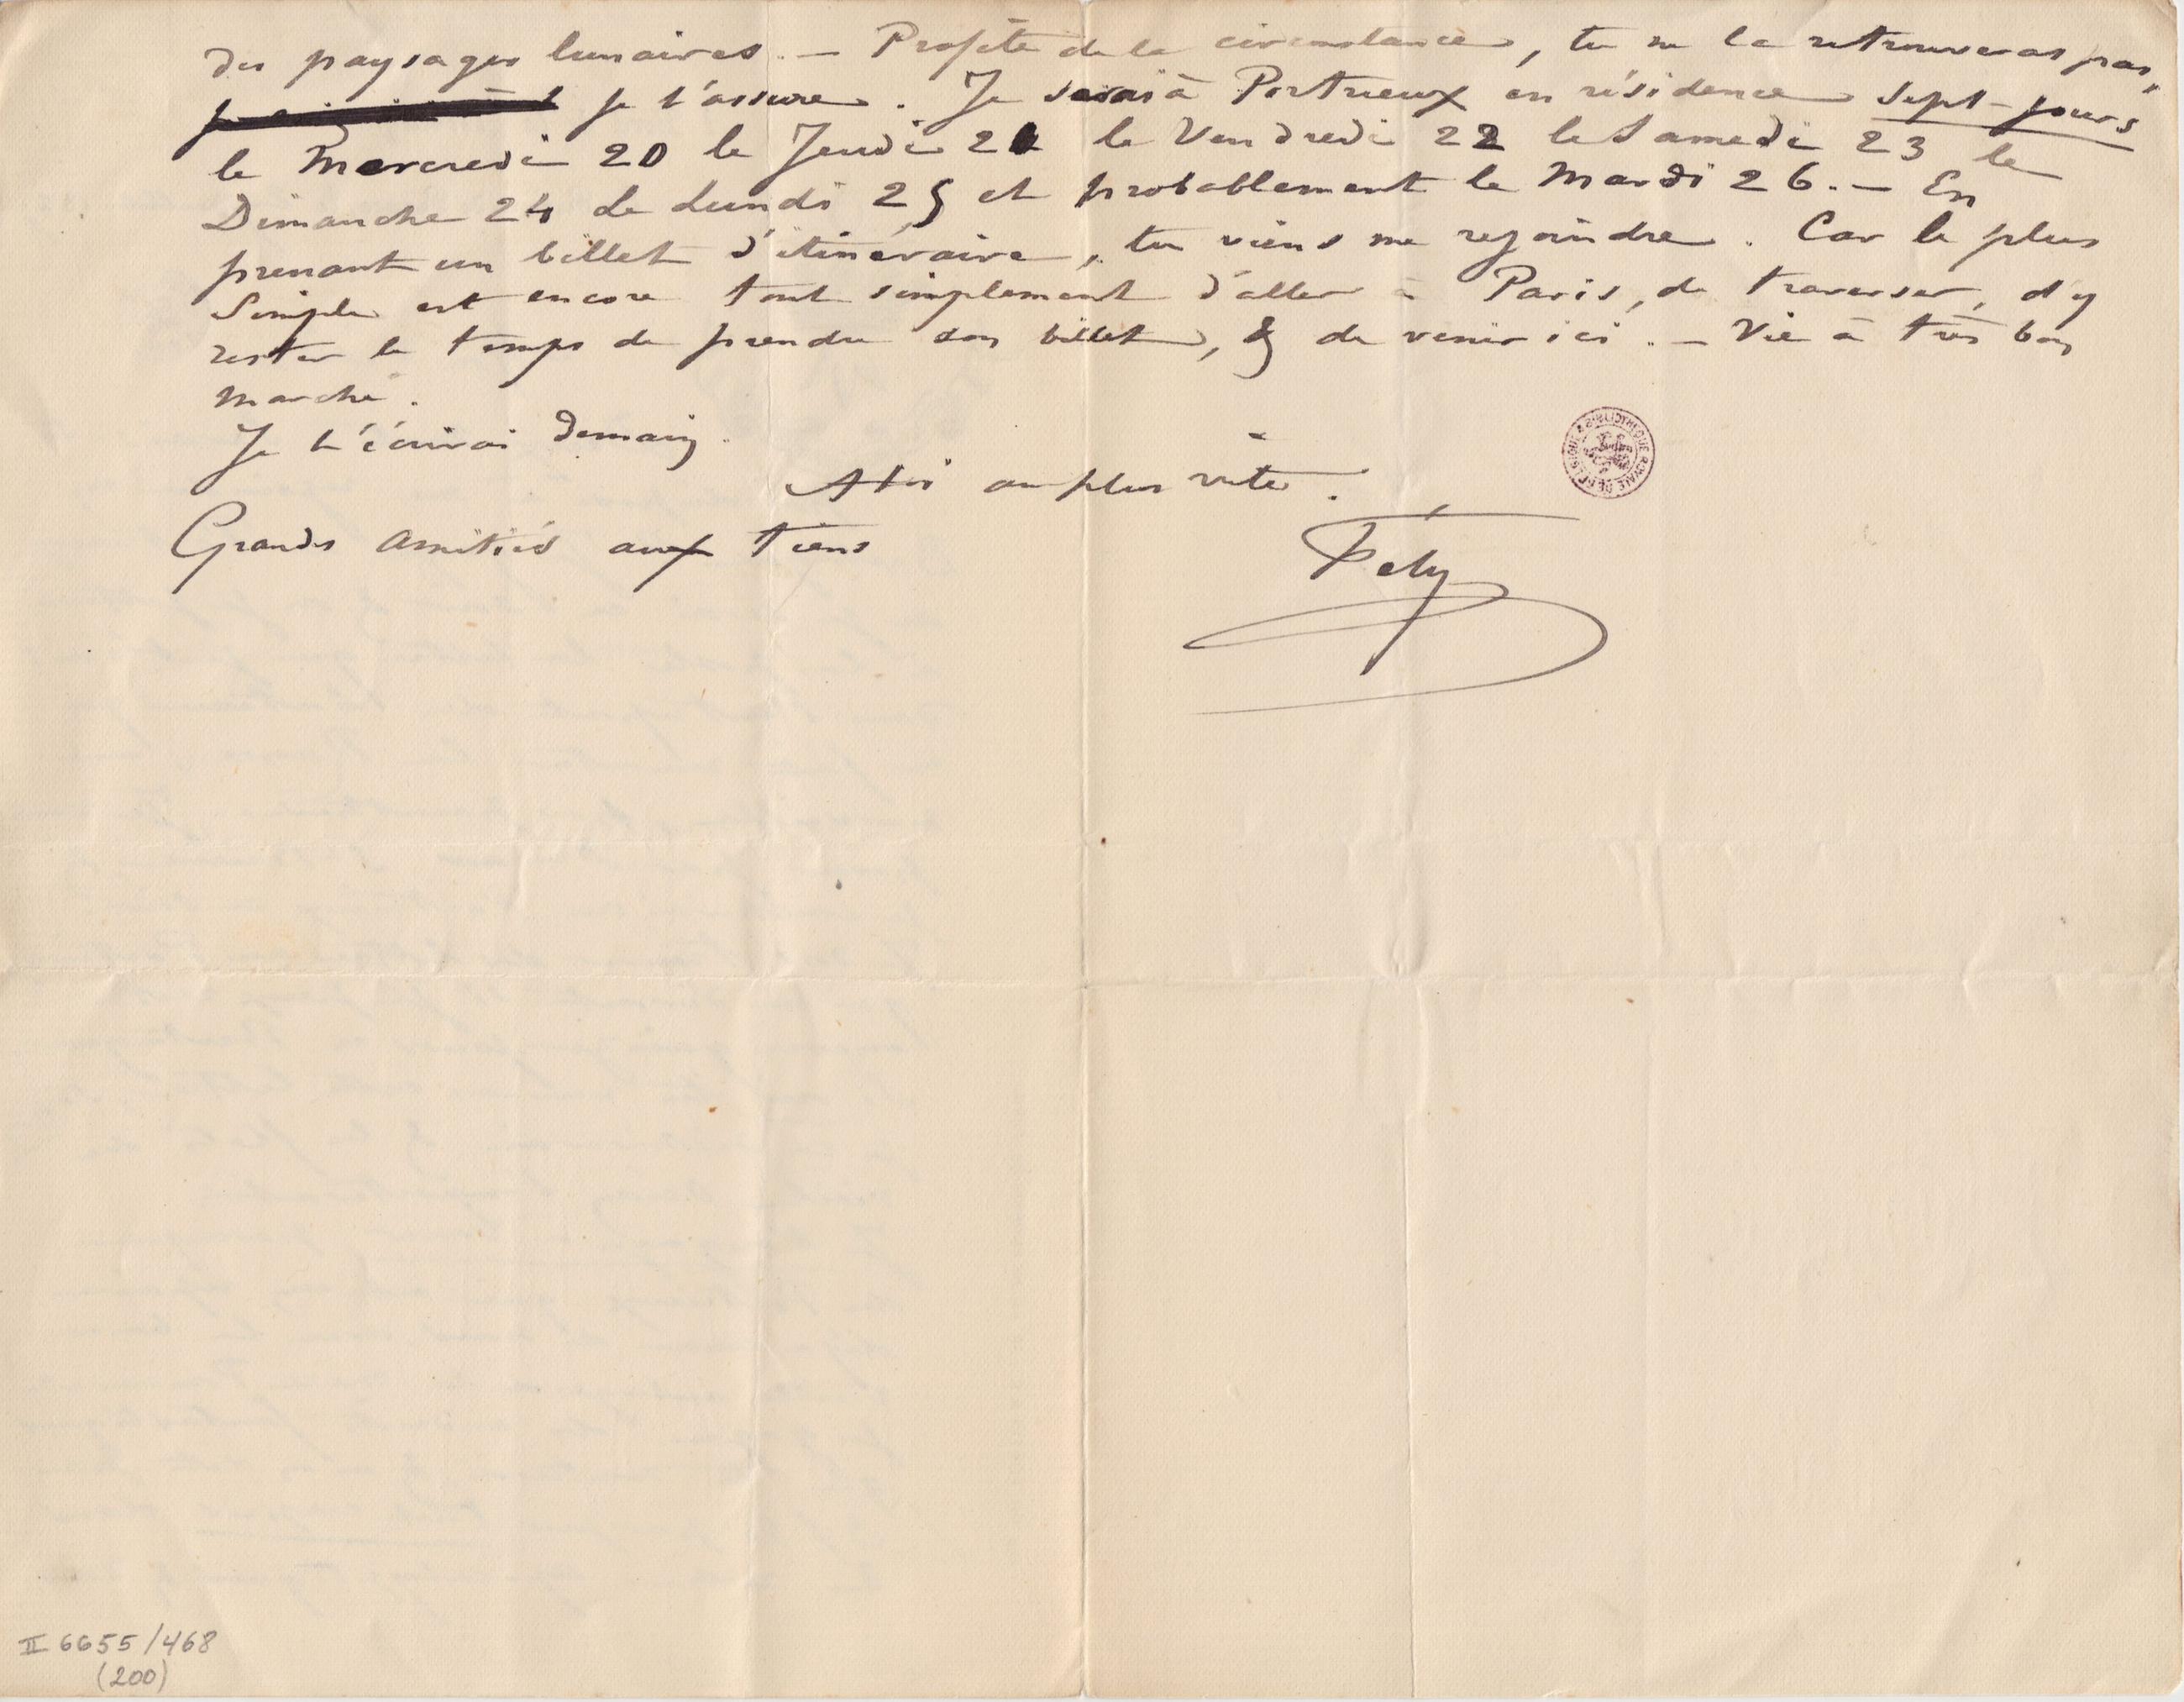 des paysages lunaires. — Profite de la circonstance, tu ne la retrouveras pas,
je t'assure. Je serai à Portrieux en résidence sept-jours
le Mercredi 20 le Jeudi 21 le Vendredi 22 le Samedi 23 le
Dimanche 24 le Lundi 25 et probablement le Mardi 26. — En
prenant un billet d'itinéraire, tu viens me rejoindre. Car le plus
simple est encore tout simplement d'aller à Paris, de traverser, d'y
rester le temps de prendre son billet, & de venir ici. — Vie à très bon
marché.
Je t'écrirai demain.
A toi au plus vite.
Grandes amitiés aux tiens
Fély
BIBLIOTHEQUE ROYALE DE BELGIQUE
II 6655/468
(200)